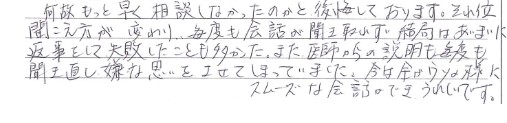 何故もっと早く相談しなかったのかと後悔しております。それ位
聞こえ方が変わり、毎度も会話が聞き取れず結局はあいまいに
返事をして失敗したことも多かった。また医師からの説明も毎度も
聞き直し嫌な思いをさせてしまっていました。今は全くウソの様に
スムーズな会話ができうれしいです。